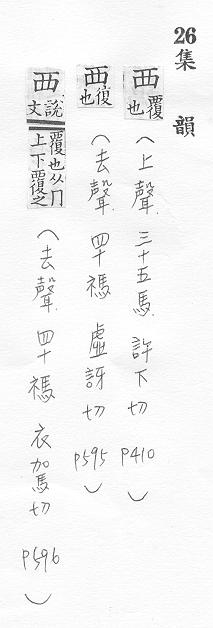 26 集韻
襾 覆也 (上聲 三十五馬 許下切 P410)
襾 復也 (去聲 四十禡 虛訝切 P595)
襾 說文覆也从冂上下覆之 (去聲 四十禡 衣駕切 P596)